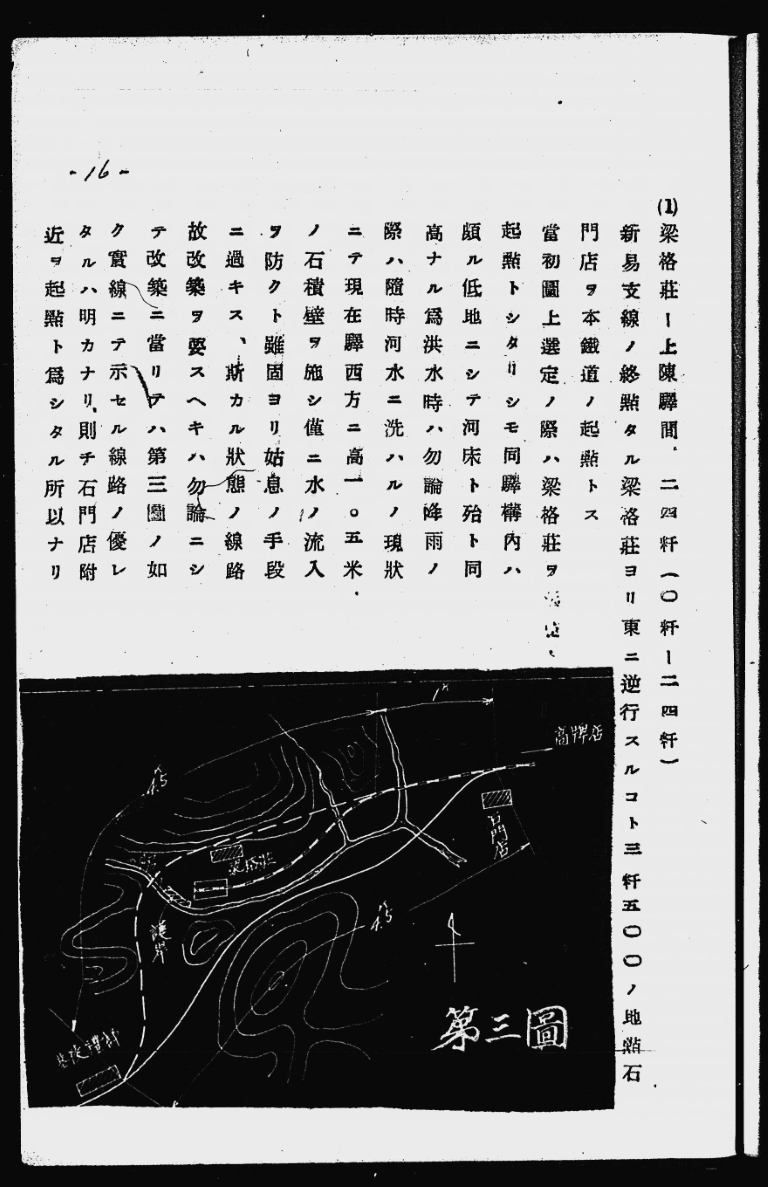 (1)梁格莊ー上陳驛間. 二四粁(〇粁ー二四粁)
新易支線ノ終點タル梁格莊ヨリ東ニ逆行スルコト三粁五〇〇ノ地點石
門店ヲ本鐵道ノ起點トス
當初圖上選定ノ際ハ梁格莊ヲ
起點トシタリシモ同驛構內ハ
頗ル低地ニシテ河床ト殆ト同
高ナル爲洪水時ハ勿論降雨ノ
際ハ隨時河水ニ洗ハルノ現狀
ニテ現在驛西方ニ高一〇五米.
ノ石積壁ヲ施シ僅ニ水ノ流入
ヲ防クト雖固ヨリ姑息ノ手段
ニ過キス、斯カル狀態ノ線路
故改築ヲ要スヘキハ勿論ニシ
テ改築ニ當リテハ第三圖ノ如
ク實線ニテ示セル線路ノ優レ
タルハ明カナリ、則チ石門店附
近ヲ起點ト爲シタル所以ナリ
-16-
高牌店
石門店
梁格莊
護岸
第三圖